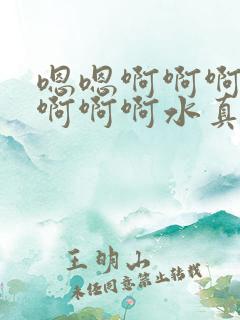 嗯嗯啊啊啊
啊啊啊水真
王明山
未经同意禁止转载